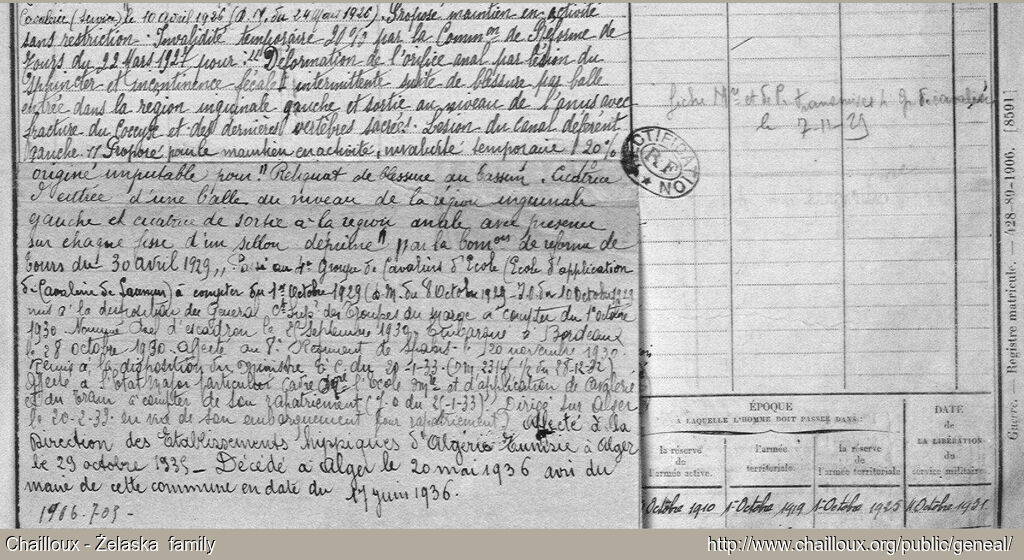 Cavalerie (service) le 10 avril 1926 (D.M. du 24 Mars 1926). Proposé maintien en activité
sans restriction. Invalidité temporaire 20% par la Common de Réforme de
Tours du 22 Mars 1927 pour "Déformation de l'orifice anal par lésion du
sphincter et incontinence fécale intermittente suite de blessure par balle
entrée dans la région inguinale gauche et sortie au niveau de l'anus avec
fracture du coccyx et des dernières vertèbres sacrées. Lésion du canal déférent
gauche." Proposé pour le maintien en activité, invalidité temporaire 20%
origine imputable pour "Reliquat de blessure au bassin. Cicatrice
d'entrée d'une balle au niveau de la région inguinale
gauche et cicatrice de sortie à la région anale avec présence
sur chaque fesse d'un sillon déprimé" par la Comon de réforme de
Tours du 30 avril 1929,, Passé au 4e Groupe de Cavaliers d'Ecole (Ecole d'application
de Cavalerie de Saumur) à compter du 1er Octobre 1929 (D.M. du 8 Octobre 1929 - J.O. du 10 Octobre 1929
mis à la disposition du Général Ct Supr des Troupes du Maroc à compter du 1er Octobre
1930. Nommé d'escadron le 25 Septembre 1930. Embarqué à Bordeaux
le 28 octobre 1930. Affecté au 8e Régiment de Spahis le 20 novembre 1930.
Remis à la disposition du Ministre 20-1-33 (DM 28-12-32)
Affecté à l'état Major particulier l'Ecole Mre et d'application de Cavalerie
et du Train à compter de son rapatriement (J.O du 21-1-33). Dirigé sur Alger
le 20-2-33 en vue de son embarquement pour rapatriement, Affecté à la
Direction des Etablissements hippiques d'Algérie Tunisie à Alger
le 29 octobre 1935 - Décédé à Alger le 20 mai 1936 avis du
maire de cette commune en date du 17 juin 1936.
1906-709-
fiche Mre et de transmises Gr. de cavaliers
le 7-11-29
RECTIFICATION
R F
ÉPOQUE
À LAQUELLE L'HOMME DOIT PASSER DANS :
DATE
de
LA LIBÉRATION
du
service militaire.
la réserve
de
l'armée active.
l'armée
territoriale.
la réserve
de
l'armée territoriale
Octobre 1910
1er Octobre 1919
1er Octobre 1925
1er Octobre 1931.
Guerre. — Registre matricule. — 428-89-1906. [8591]
Chailloux - Żelaska family
http://www.chailloux.org/public/geneal/